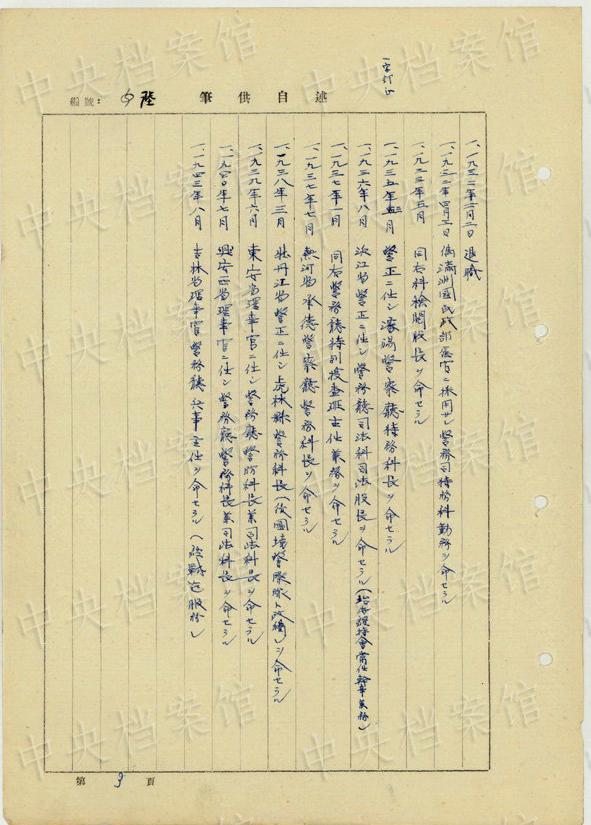 編號：
述自供筆
一字訂正
一、一九三二年二月二日 退職
一、一九三二年四月一日 偽満洲國民政部属官ニ採用サレ警務司特務科勤務ヲ命セラル
一、一九三三年五月 同右科検閲股長ヲ命セラル
一、一九三五年三月 警正ニ任シ瀋陽警察廳特務科長ヲ命セラル
一、一九三六年八月 浜江省警正ニ任シ警務廳司法科司法股長ヲ命セラル（治安維持會常任幹事兼務）
一、一九三七年一月 同右警務廳特別捜査班主任兼務ヲ命セラル
一、一九三七年七月 熱河省承徳警察廳警務科長ヲ命セラル
一、一九三八年三月 牡丹江省警正ニ任シ虎林縣警務科長（後國境警察隊ト改編）ヲ命セラル
一、一九三九年六月 東安省理事官ニ任シ警務廳警防科長兼司法科長ヲ命セラル
一、一九四〇年七月 興安西省理事官ニ任シ警務廳警務科長兼司法科長ヲ命セラル
一、一九四三年八月 吉林省理事官警務廳兵事主任ヲ命セラル（敗戦迄服務）
第 3 頁
中央档案馆